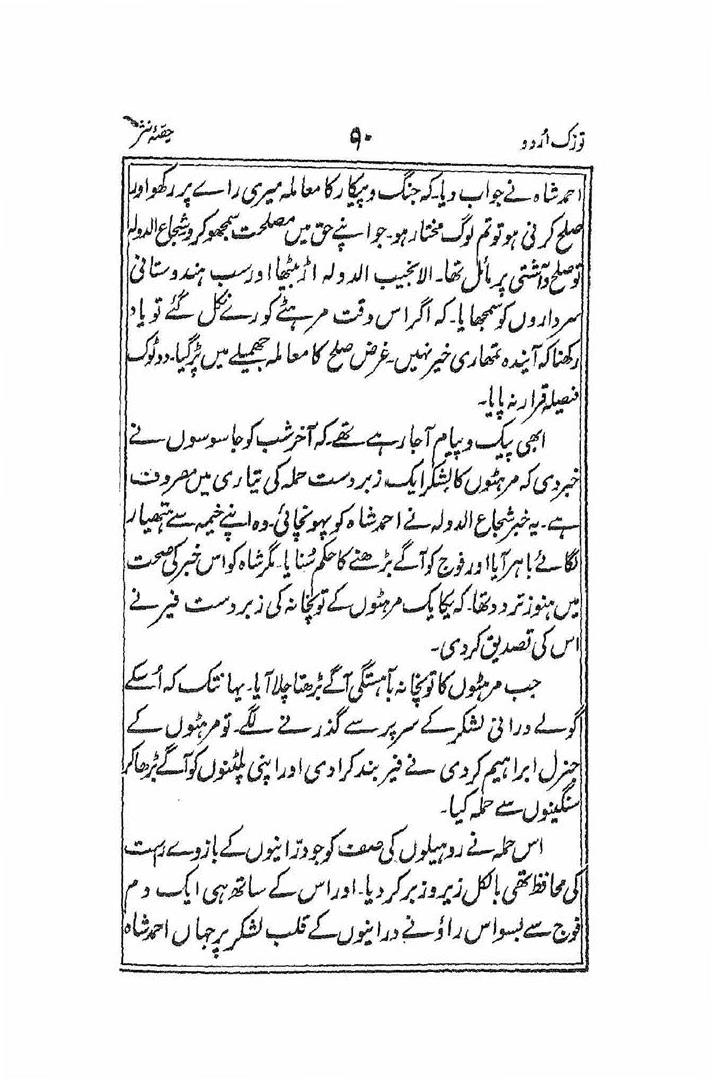 توزک اُردو ۹۰ حصّۂ نثر
احمد شاہ نے جواب دیا۔ کہ جنگ و پیکار کا معاملہ میری راے پر رکھو اور
صلح کرنی ہو تو تم لوگ مختار ہو۔ جو اپنے حق میں مصلحت سمجھو کرو شجاع الدولہ
تو صلح و آشتی پر مائل تھا۔ الا نجیب الدولہ اڑ بیٹھا اور سب ہندوستانی
سرداروں کو سمجھایا۔ کہ اگر اس وقت مرہٹے کورے نکل گئے تو یاد
رکھنا کہ آیندہ تمھاری خیر نہیں۔ غرض صلح کا معاملہ جھمیلے میں پڑ گیا۔ دو ٹوک
فیصلہ قرار نہ پایا۔
ابھی پیک و پیام آ جا رہے تھے۔ کہ آخر شب کو جاسوسوں نے
خبر دی کہ مرہٹوں کا لشکر ایک زبردست حملہ کی تیاری میں مصروف
ہے۔ یہ خبر شجاع الدولہ نے احمد شاہ کو پہونچائی۔ وہ اپنے خیمہ سے ہتھیار
لگائے باہر آیا اور فوج کو آگے بڑھنے کا حکم سُنایا۔ مگر شاہ کو اس خبر کی صحت
میں ہنوز تردد تھا۔ کہ یکایک مرہٹوں کے توپخانہ کی زبردست فیر نے
اس کی تصدیق کر دی۔
جب مرہٹوں کا توپخانہ بآہستگی آگے بڑھتا چلا آیا۔ یہانتک کہ اُسکے
گولے درانی لشکر کے سر پر سے گذرنے لگے۔ تو مرہٹوں کے
جنرل ابراہیم کردی نے فیر بند کرا دی اور اپنی پلٹنوں کو آگے بڑھا کر
سنگینوں سے حملہ کیا۔
اس حملہ نے روہیلوں کی صف کو جو درّانیوں کے بازوے راست
کی محافظ تھی بالکل زیر و زبر کر دیا۔ اور اس کے ساتھ ہی ایک دم
فوج سے بسواس راؤ نے درانیوں کے قلب لشکر پر جہاں احمد شاہ